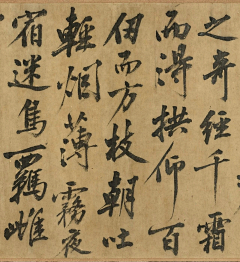 之奇經千霜
而得拱仰百
仞而方枝朝吐
輕烟薄霧夜
宿迷鳥羈雌